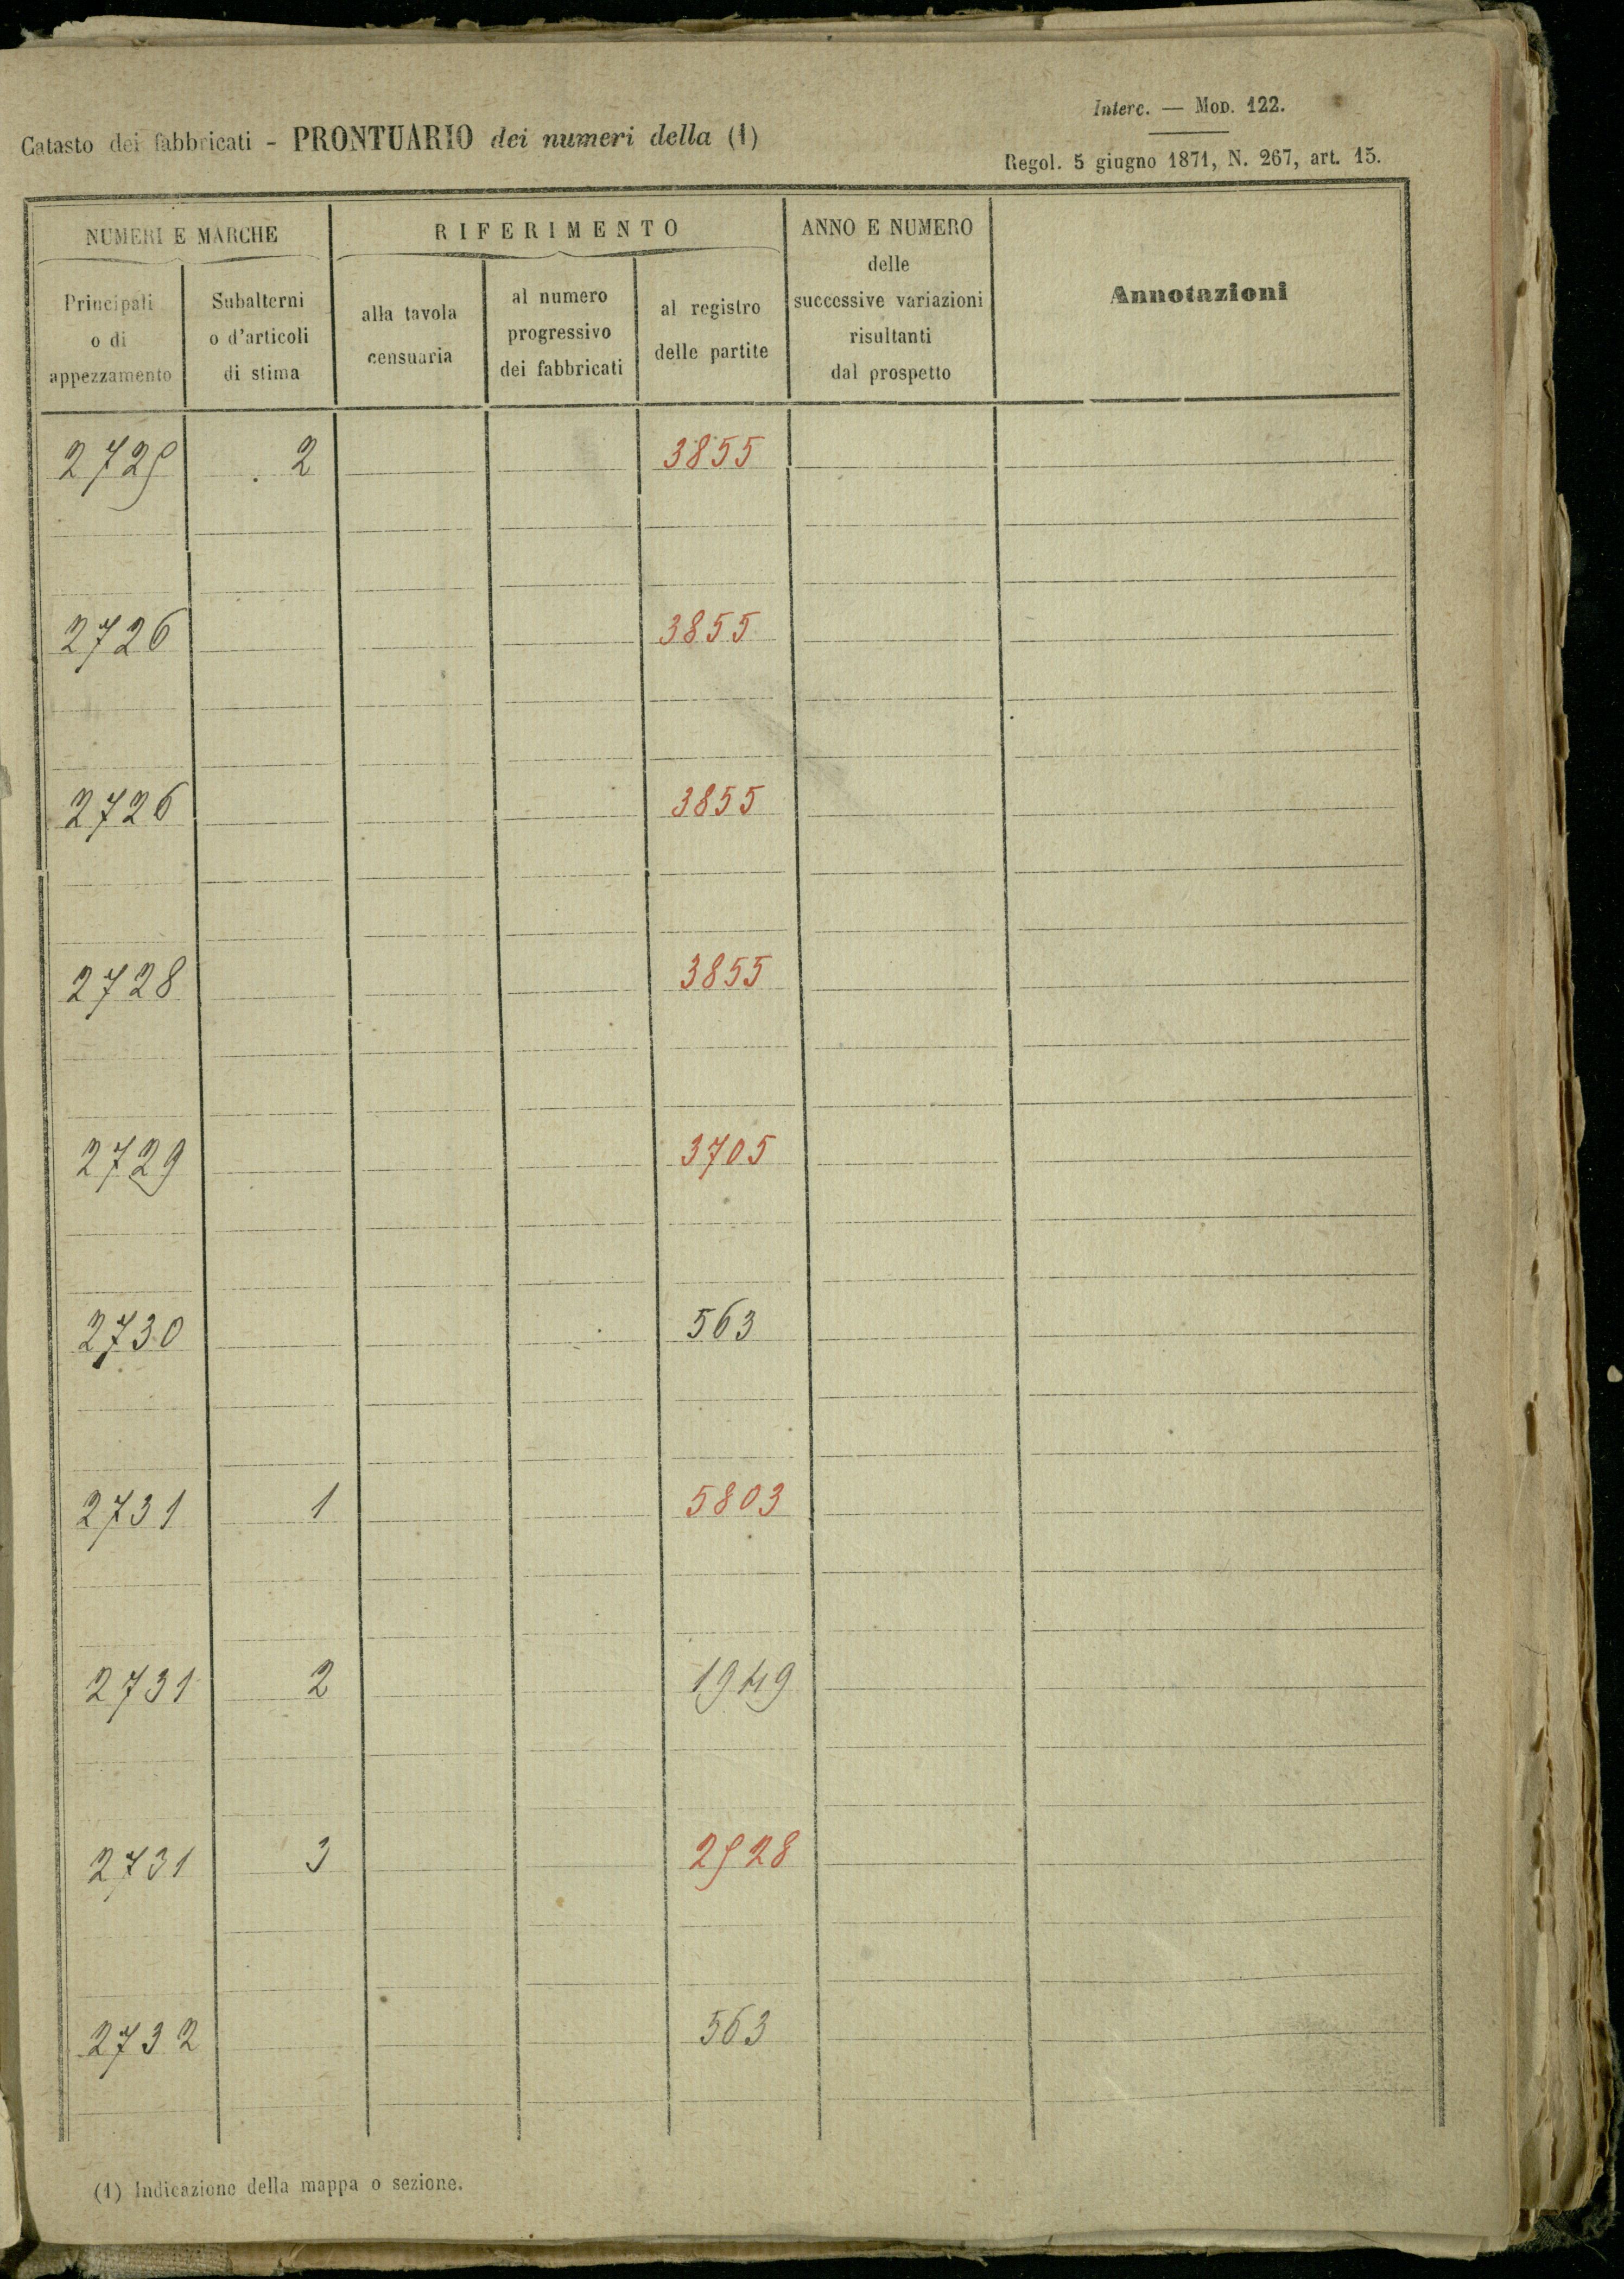 Interc. — Mod. 122.
Catasto dei fabbricati - PRONTUARIO dei numeri della (1)
Regol. 5 giugno 1871, N. 267, art. 15.
NUMERI E MARCHE
Principali
o di
appezzamento
Subalterni
o d'articoli
di stima
RIFERIMENTO
alla tavola
censuaria
al numero
progressivo
dei fabbricati
al registro
delle partite
ANNO E NUMERO
delle
successive variazioni
risultanti
dal prospetto
Annotazioni
2725 2 3855
2726 3855
2726 3855
2728 3855
2729 3705
2730 563
2731 1 5803
2731 2 1949
2731 3 2528
2732 563
(1) Indicazione della mappa o sezione.